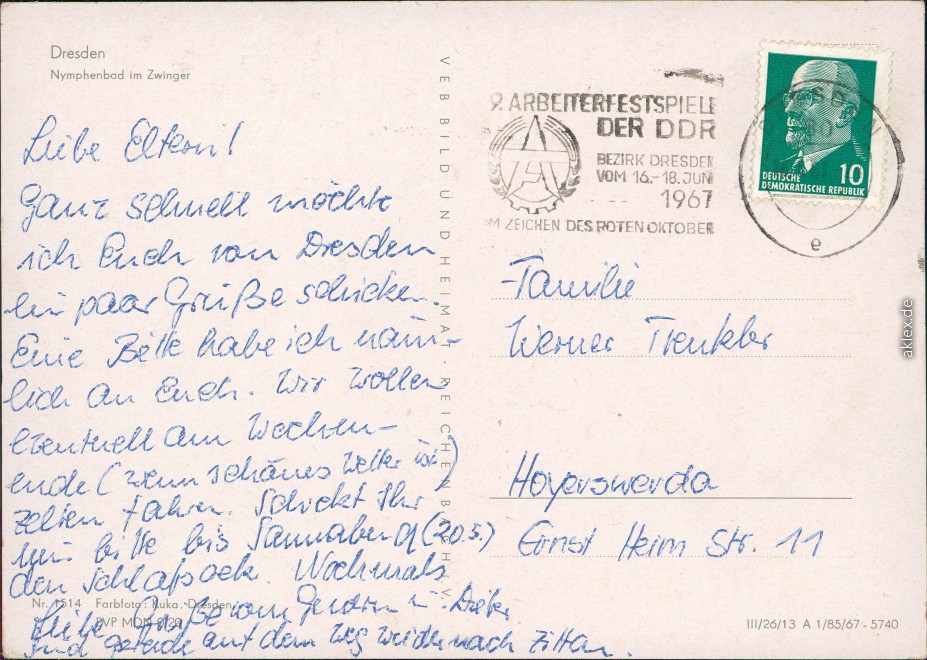 Dresden
Nymphenbad im Zwinger
Liebe Eltern!
Ganz schnell möchte
ich Euch von Dresden
ein paar Grüße schicken.
Eine Bitte habe ich näm-
lich an Euch. Wir wollen
eventuell am Wochen-
ende (wenn schönes Wetter ist)
zelten fahren. Schickt Ihr
mir bitte bis Sonnabend (20.5.)
den Schlafsack. Nochmals
liebe Grüße von
sind gerade auf dem Weg
Nr. 1514 Farbfoto: Kuka, Dresden
EVP MDN 0,20
VEB BILD UND HEIMAT · REICHENBACH I. V.
9. ARBEITERFESTSPIELE
DER DDR
BEZIRK DRESDEN
VOM 16.-18. JUNI
1967
IM ZEICHEN DES ROTEN OKTOBER
DEUTSCHE 10
DEMOKRATISCHE REPUBLIK
e
Familie
Werner Trenkler
Hoyerswerda
Ernst Heim Str. 11
III/26/13 A 1/85/67 - 5740
aklex.de